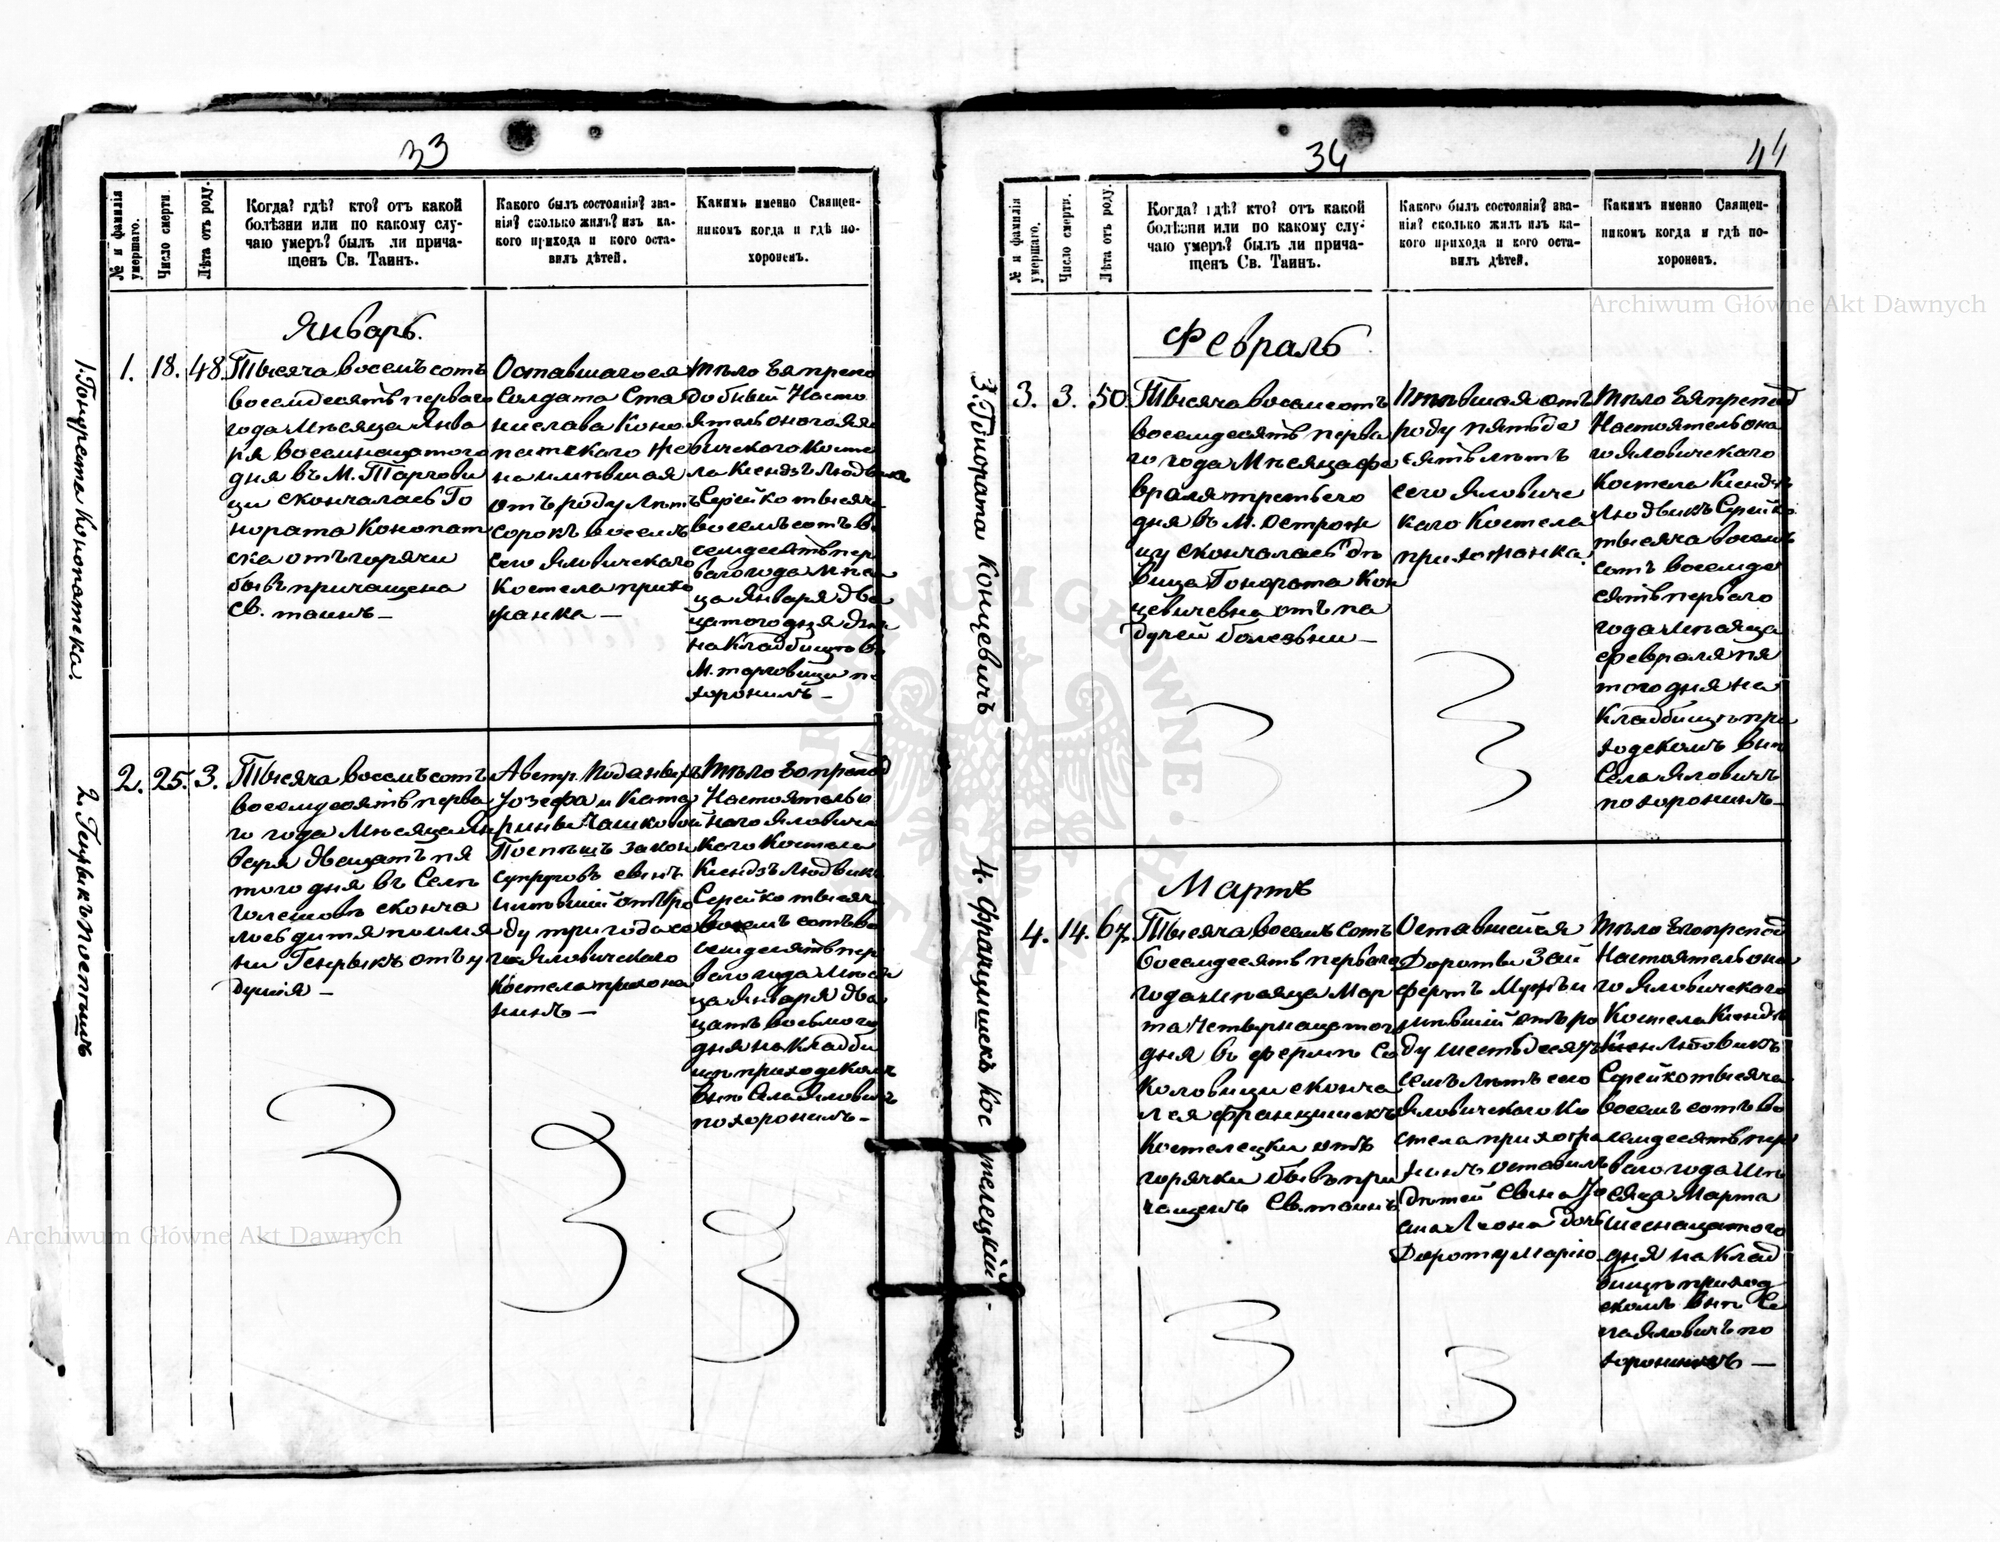 33
№ и фамилія умершаго.
Число смерти.
Лѣта отъ роду.
Когда? гдѣ? кто? отъ какой
болѣзни или по какому слу-
чаю умеръ? былъ ли прича-
щенъ Св. Таинъ.
Какого былъ состоянія? зва-
нія? сколько жилъ? изъ ка-
кого прихода и кого оста-
вилъ дѣтей.
Какимъ именно Священ-
никомъ когда и гдѣ по-
хороненъ.
Январь.
1. Гонората Конопатска.
1.
18.
48.
Тысяча восемъ сотъ
восемдесятъ перваго
года Мѣсяца Янва
ря восемнацатого
дня въ М. Торгови
ци скончалась Го
нората Конопат
ска отъ горячи
бывъ причащена
Св. таинъ —
Оставшагося
Солдата Ста
нислава Коно
патского Же
на имѣвшая
отъ роду лѣтъ
сорокъ восемъ
сего Яловичскаго
Костела прихо
жанка —
тѣло Ея препо
добный Насто
ятель оного Яло
вичского Косте
ла Ксендзъ Людвикъ
Серейко тысяча
восемъ сотъ во
семдесятъ пер
ваго года Мѣся
ца Января два
цатого дня
на Кладбищѣ въ
М. торговици по
хоронилъ —
2. Генрыкъ Поспѣшъ
2.
25.
3.
Тысяча восемъ сотъ
восемдесятъ перва
го года Мѣсяца Ян
варя двацатъ пя
того дня въ Селѣ
скончa
лось дитя по имя
ни Генрыкъ отъ у
душiя —
Австр. Поданыхъ
Іозефа и Ката
рины
Поспѣшъ закон
супруговъ сынъ
имѣвшій отъ ро
ду три года се
го Яловичскаго
Костела прихожа
нинъ —
Тѣло Его препод
Настоятель о
ного Яловичс
кого Костела
Ксендзъ Людвикъ
Серейко тысяча
восемъ сотъ во
семдесятъ пер
ваго года Мѣся
ца Января два
цатъ восьмого
дня на Кладби
щѣ приходскомъ
внѣ Села Яловичъ
похоронилъ —
34
44
№ и фамилія умершаго.
Число смерти.
Лѣта отъ роду.
Когда? гдѣ? кто? отъ какой
болѣзни или по какому слу-
чаю умеръ? былъ ли прича-
щенъ Св. Таинъ.
Какого былъ состоянія? зва-
нія? сколько жилъ изъ ка-
кого прихода и кого оста-
вилъ дѣтей.
Какимъ именно Священ-
никомъ когда и гдѣ по-
хороненъ.
Февраль
3. Гонората Концевичъ
3.
3.
50
Тысяча восемъ сотъ
восемдесятъ перва
го года Мѣсяца Фе
враля третьего
дня въ М. Острож
цу скончалась дѣ
вица Гонората Кон
цевичевна отъ па
дучей болезьни —
Имѣвшая отъ
роду пятьде
сятъ лѣтъ
сего Яловичс
кого Костела
прихожанка.
Тѣло Ея препод
Настоятель она
го Яловичского
Костела Ксендзъ
Людвикъ Серейко
тысяча восемъ
сотъ восемде
сятъ перваго
года Мѣсяца
февраля пя
того дня на
Кладбищѣ при
ходскомъ внѣ
Села Яловичъ
похоронилъ —
Мартъ
4. Францишекъ Костелецкій.
4.
14.
67.
Тысяча восемъ сотъ
восемдесятъ перваго
года Мѣсяца Мар
та Четырнацатого
дня въ фермѣ Со
коловици сконча
лся Францишекъ
Костелецки отъ
горячки бывъ при
чащенъ Св. таинъ
Оставшійся
Дороты Зай
фертъ Мужъ и
мѣвшій отъ ро
ду шестьдесятъ
семъ лѣтъ сего
Яловичского Ко
стела прихожа
нинъ оставилъ
дѣтей Сына
дочь
Дороту Марію
Тѣло Его препод
Настоятель она
го Яловичского
Костела Ксендзъ
Людвикъ
Серейко тысяча
восемъ сотъ во
семдесятъ пер
ваго года Мѣ
сяца Марта
шеснацатого
дня на Клад
бищѣ приход
скомъ внѣ Се
ла Яловичъ по
хоронилъ —
Archiwum Główne Akt Dawnych
Archiwum Główne Akt Dawnych
ARCHIWUM GŁÓWNE AKT DAWNYCH